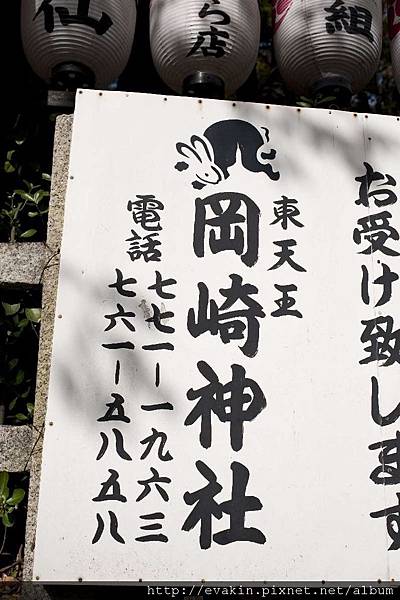 仙
ら店
組
お受け致します
東天王
岡崎神社
電話
七七一ー一九六三
七六一ー五八五八
http://evakin.pixnet.net/album